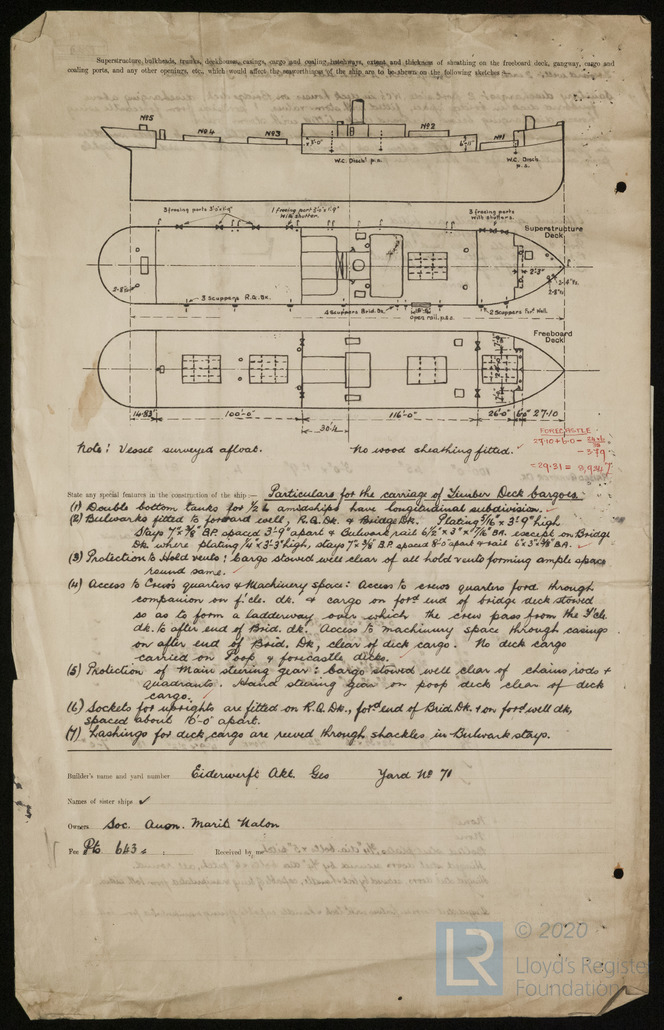 Superstructure, bulkheads, trunks, deckhouses, casings, cargo and coaling hatchways, extent and thickness of sheathing on the freeboard deck, gangway, cargo and
coaling ports, and any other openings, etc., which would affect the seaworthiness of the ship are to be shown on the following sketches :—
No5
No4
No3
No2
No1
3'-0"
6'-11"
W.C. Disch! p.s.
W.C. Disch.
p.s.
3 freeing ports 3'-0"x1'-9"
1 freeing port 3'-0"x1'-9"
With shutter.
3 freeing ports
With shutters.
Superstructure
Deck.
2'-3"
3 Scuppers R.Q. Dk.
4 Scuppers Brid. Dk.
Open rail. p.&s.
2 Scuppers For. Well.
Freeboard
Deck
14·83'
100'-0"
116'-0"
26'-0"
6'0
27·10
30'½
Note: Vessel surveyed afloat.
No wood sheathing fitted.
FORECASTLE
27·10 + 6·0 -
- 3·79
= 29·31 = 8,934%
State any special features in the construction of the ship :— Particulars for the carriage of Timber Deck Cargoes
(1) Double bottom tanks for ½ L amidships have longitudinal subdivision.
(2) Bulwarks fitted to forward well, R.Q. Dk. & Bridge Dk. Plating 5/16" x 3'-9" high
Stays 7" x 3/8" B.P. spaced 3'-9" apart & Bulwark rail 6½" x 3" x 7/16" B.A. except on Bridge
Dk. where plating ¼" x 3'-3" high, stays 7" x 3/8" B.P. spaced apart & rail 6" x 3" B.A.
(3) Protection to Hold vents: Cargo stowed well clear of all hold vents forming ample space
round same.
(4) Access to Crew's quarters & Machinery space: Access to crews quarters ford through
companion on f'cle. dk. & cargo on for'd end of bridge deck stowed
so as to form a ladderway over which the crew pass from the F'cle
dk. to after end of Brid. dk. Access to machinery space through casings
on after end of Brid. Dk, clear of deck cargo. No deck cargo
carried on Poop & forecastle decks.
(5) Protection of Main steering gear: Cargo stowed well clear of chains, rods &
quadrants. Hand steering gear on poop deck clear of deck
cargo.
(6) Sockets for uprights are fitted on R.Q. Dk., for'd end of Brid. Dk. & on for'd well dk,
spaced about 10'-0" apart.
(7) Lashings for deck cargo are reeved through shackles in Bulwark stays.
Builder's name and yard number Eiderwerft Akt. Ges Yard No 71
Names of sister ships ✓
Owners Soc. Anon. Marit. Nalon
Fee Pts 643 : : Received by me
© 2020
LR
Lloyd's Register
Foundation